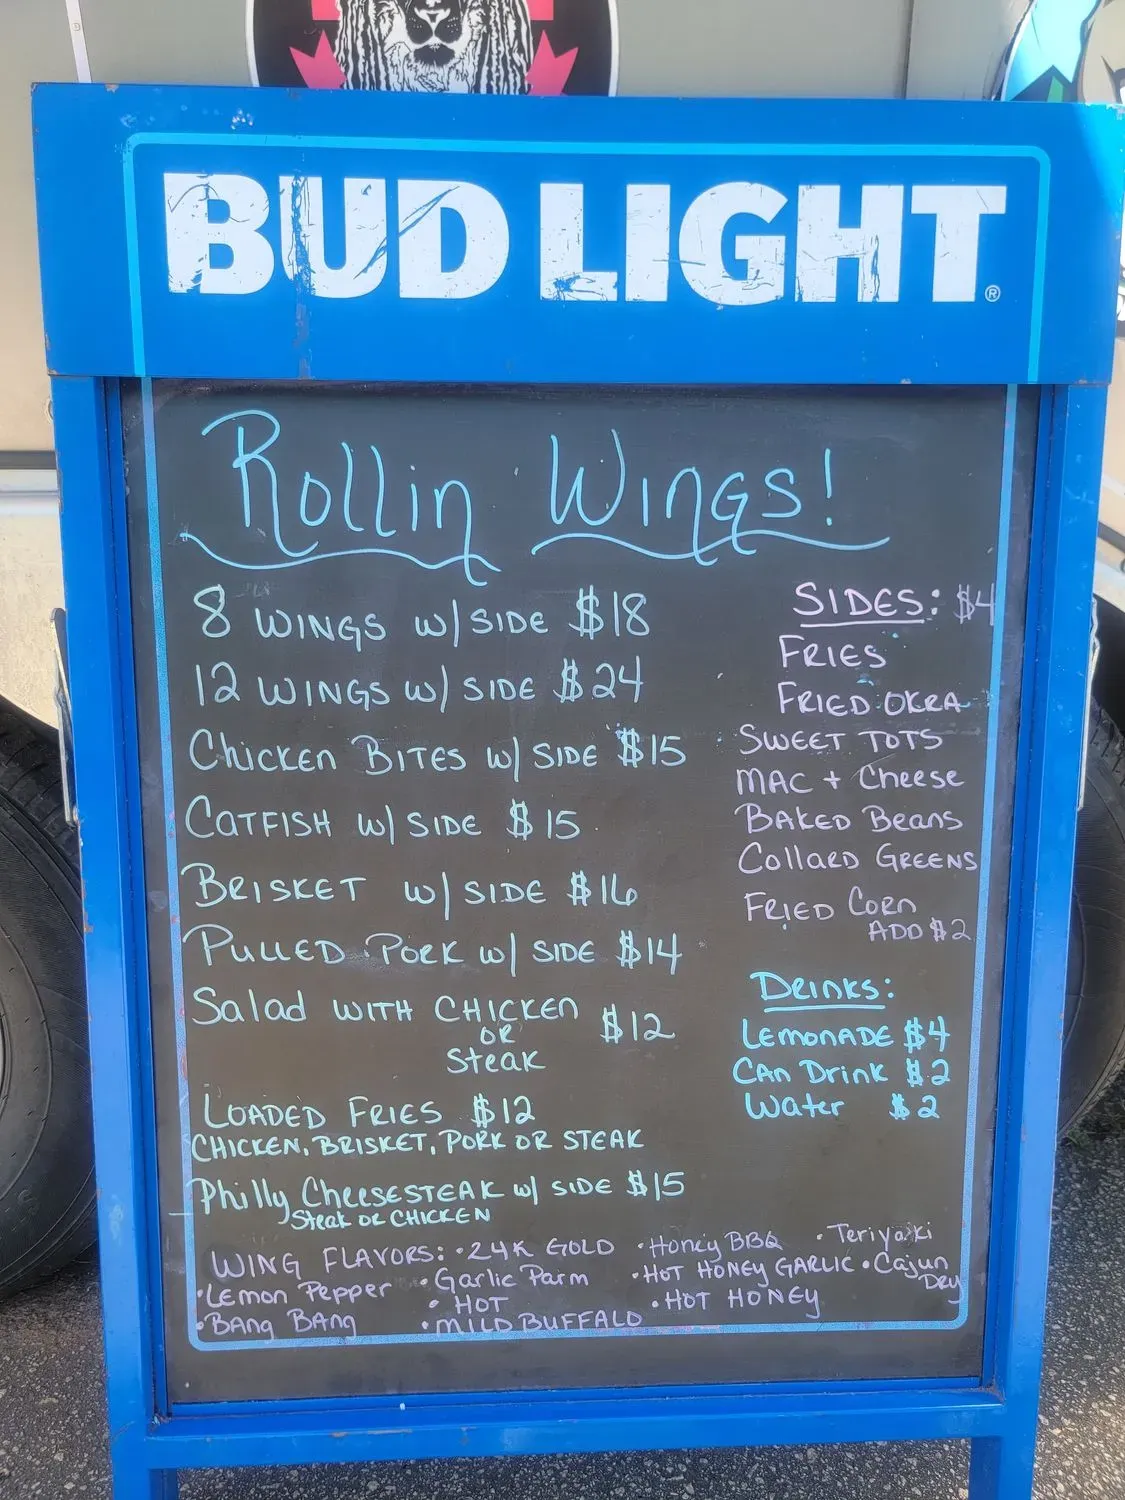 BUD LIGHT®
Rollin Wings!
8 WINGS w/ SIDE $18
12 WINGS w/ SIDE $24
Chicken BITES w/ SIDE $15
CATFISH w/ SIDE $15
BRISKET w/ SIDE $16
PULLED PORK w/ SIDE $14
Salad WITH CHICKEN $12
OR
Steak
LOADED FRIES $12
CHICKEN, BRISKET, PORK OR STEAK
Philly CheeseSTEAK w/ SIDE $15
Steak OR CHICKEN
SIDES: $4
FRIES
FRIED OKRA
SWEET TOTS
MAC + Cheese
BAKED Beans
Collard GREENS
FRIED Corn
ADD $2
Drinks:
LEMONADE $4
CAn Drink $2
Water $2
WING FLAVORS: • 24K GOLD • Honey BBQ • Teriyaki
• LEmon Pepper • Garlic Parm • HOT HONEY GARLIC • Cajun Dry
• BAng BAng • HOT • HOT HONEY
• MILD BUFFALO